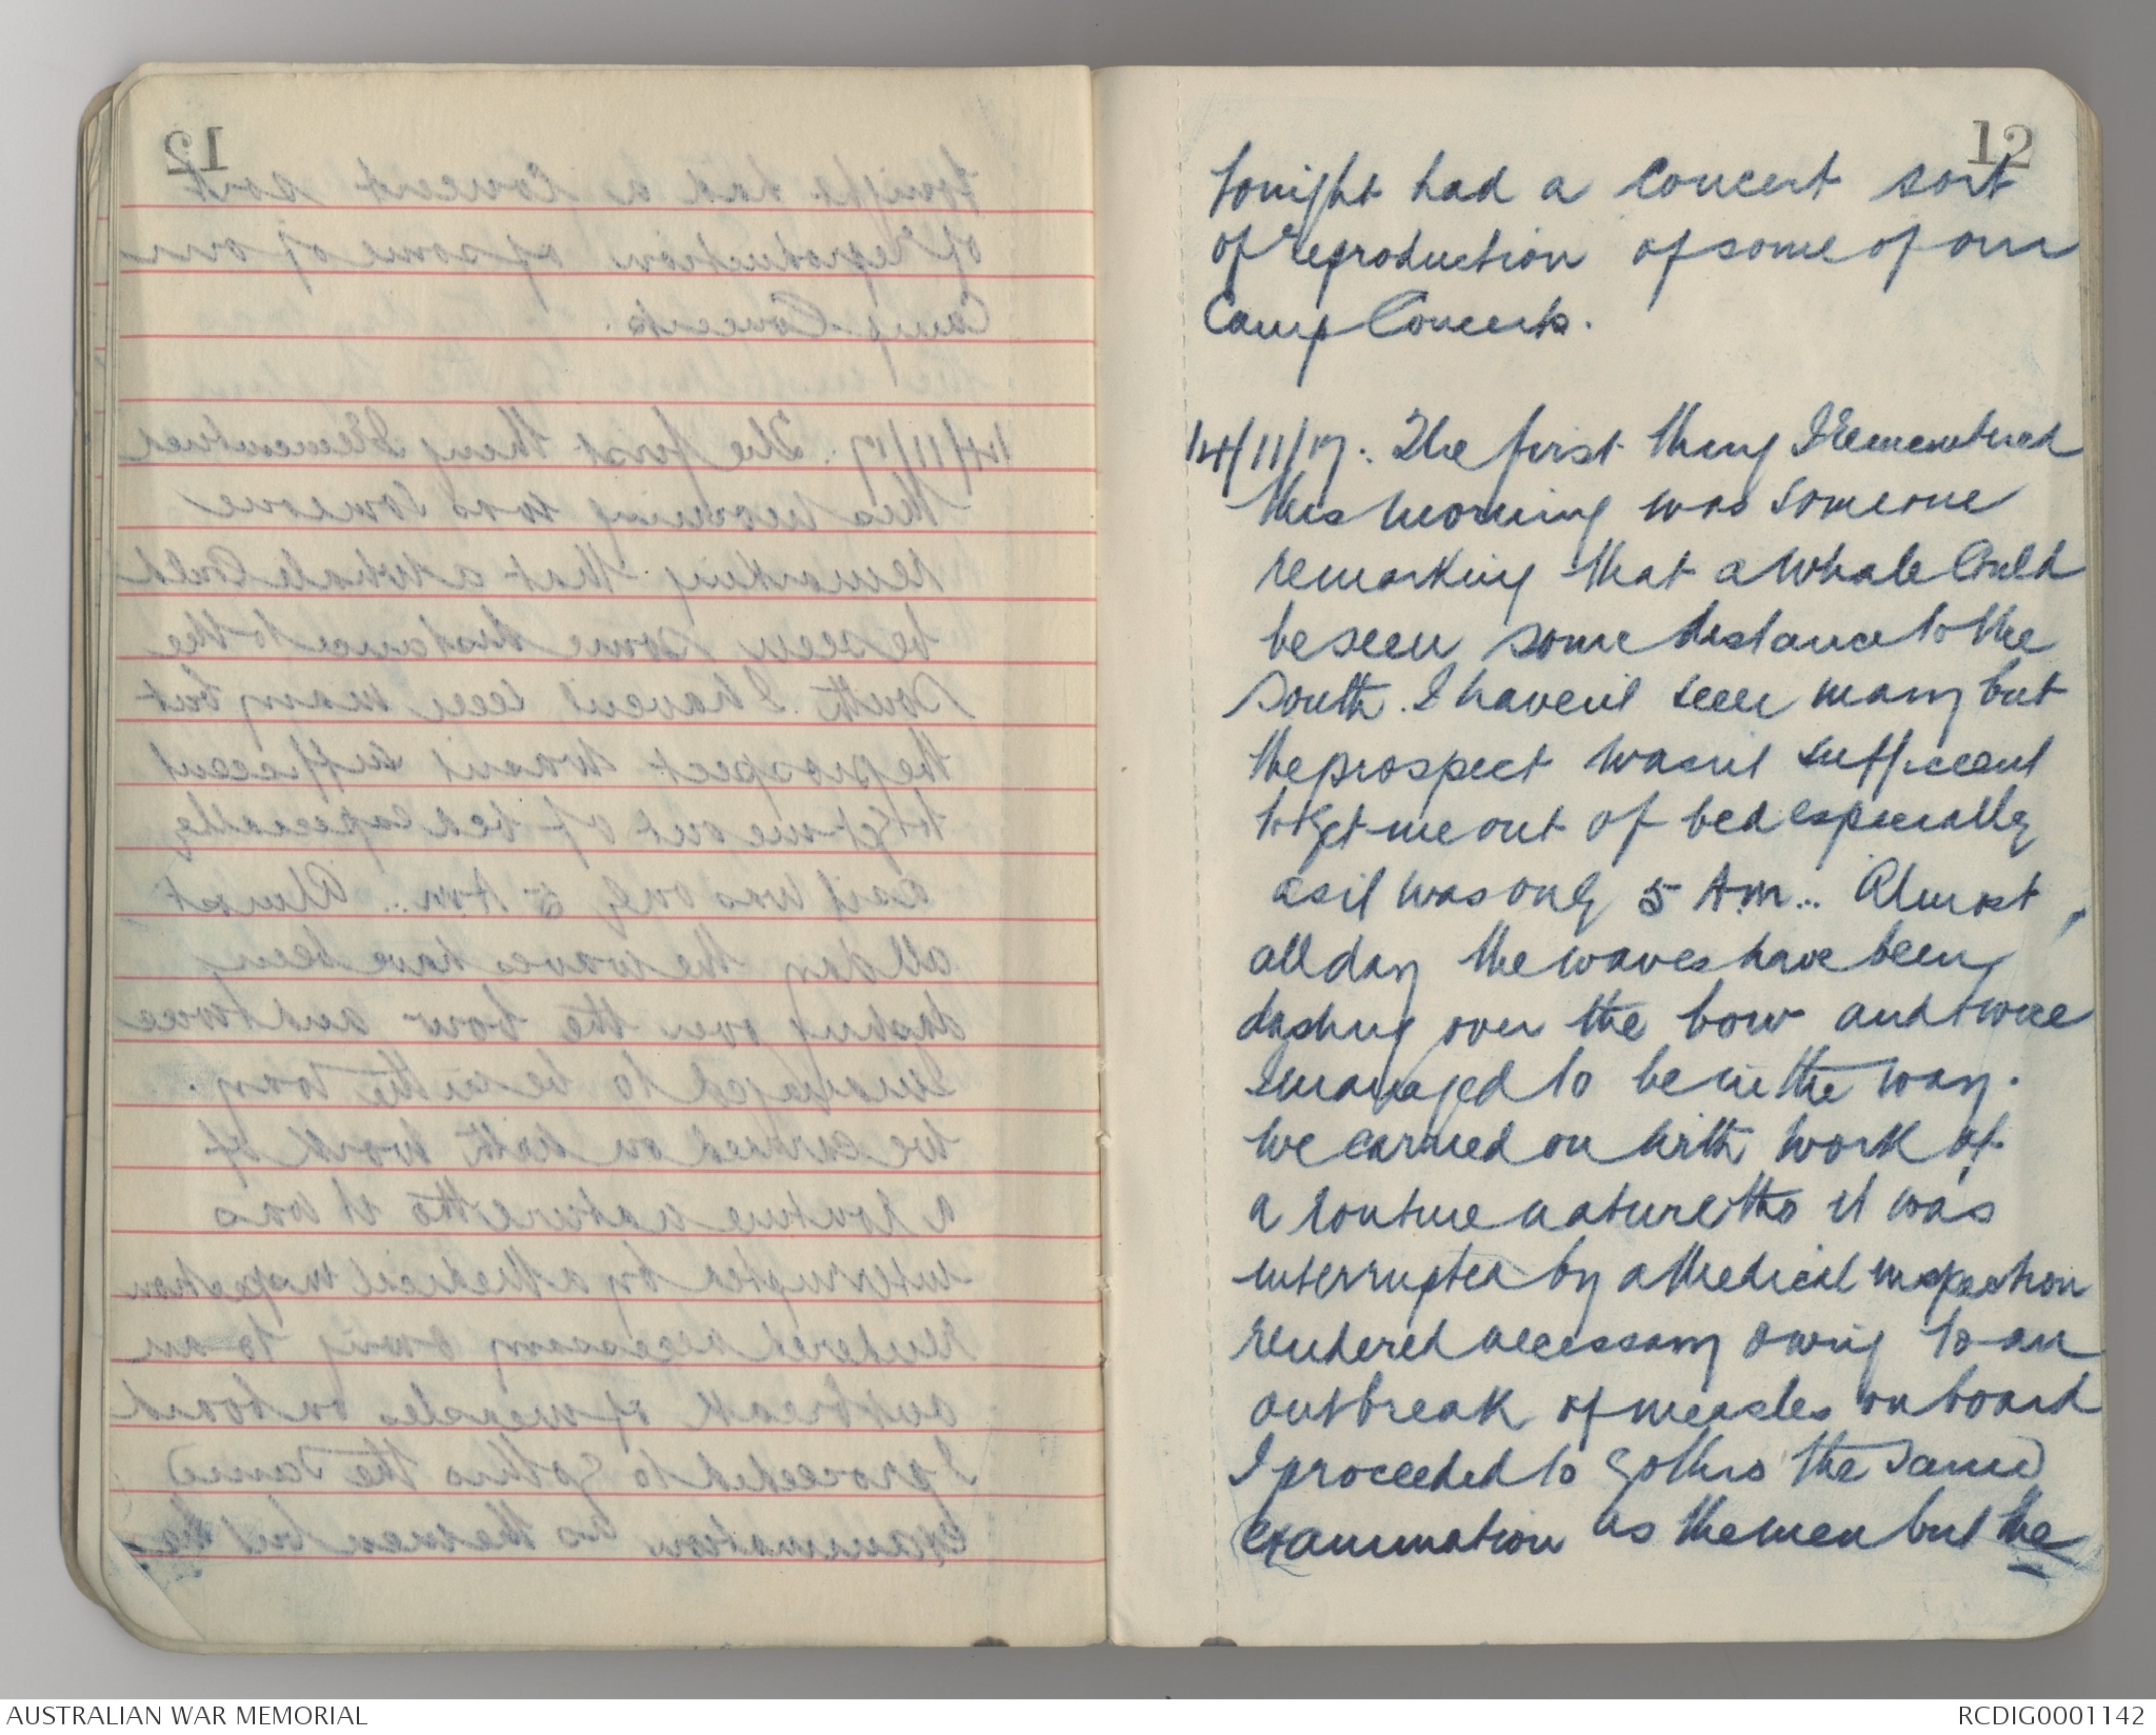 12
tonight had a Concert sort
of reproduction of some of our
Camp Concerts.
14/11/17: The first thing I remembered
this morning was someone
remarking that a whale could
be seen some distance to the
South. I haven't seen many but
the prospect wasn't sufficient
to get me out of bed especially
as it was only 5 A.m... Almost
all day the waves have been
dashing over the bow and twice
I managed to be in the way.
We carried on with work of
a routine nature tho it was
interrupted by a Medical inspection
rendered necessary owing to an
outbreak of measles on board
I proceeded to go thro the same
examination as the men but the
AUSTRALIAN WAR MEMORIAL
RCDIG0001142